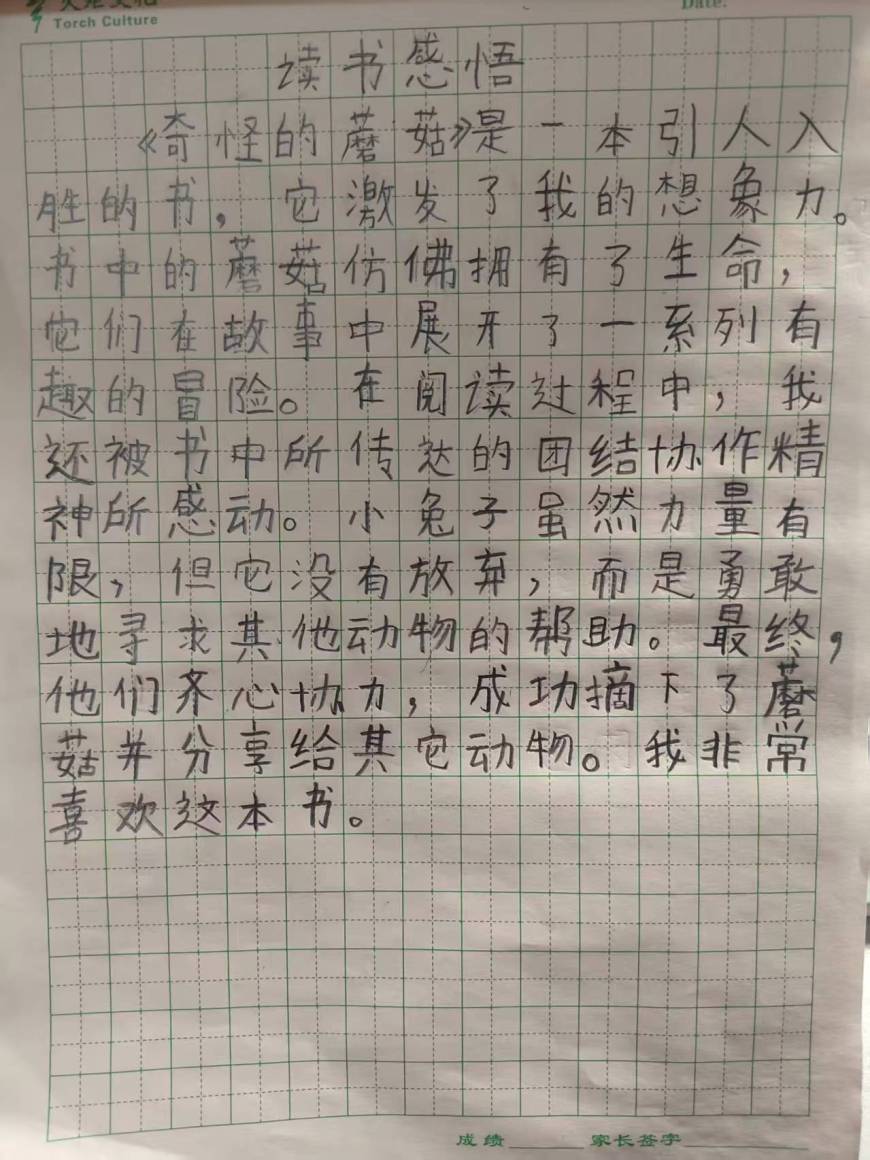 Torch Culture
Date:
读书感悟
《奇怪的蘑菇》是一本引人入
胜的书，它激发了我的想象力。
书中的蘑菇仿佛拥有了生命，
它们在故事中展开了一系列有
趣的冒险。在阅读过程中，我
还被书中所传达的团结协作精
神所感动。小兔子虽然力量有
限，但它没有放弃，而是勇敢
地寻求其他动物的帮助。最终，
他们齐心协力，成功摘下了蘑
菇并分享给其它动物。我非常
喜欢这本书。
成绩 家长签字